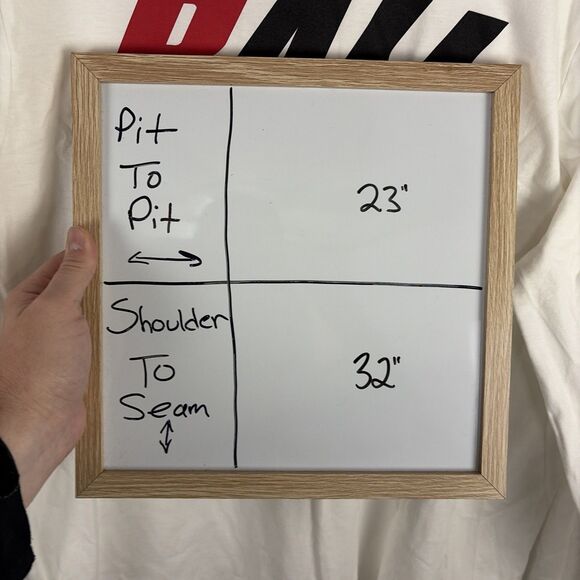 Pit
To
Pit
23"
Shoulder
To
Seam
32"